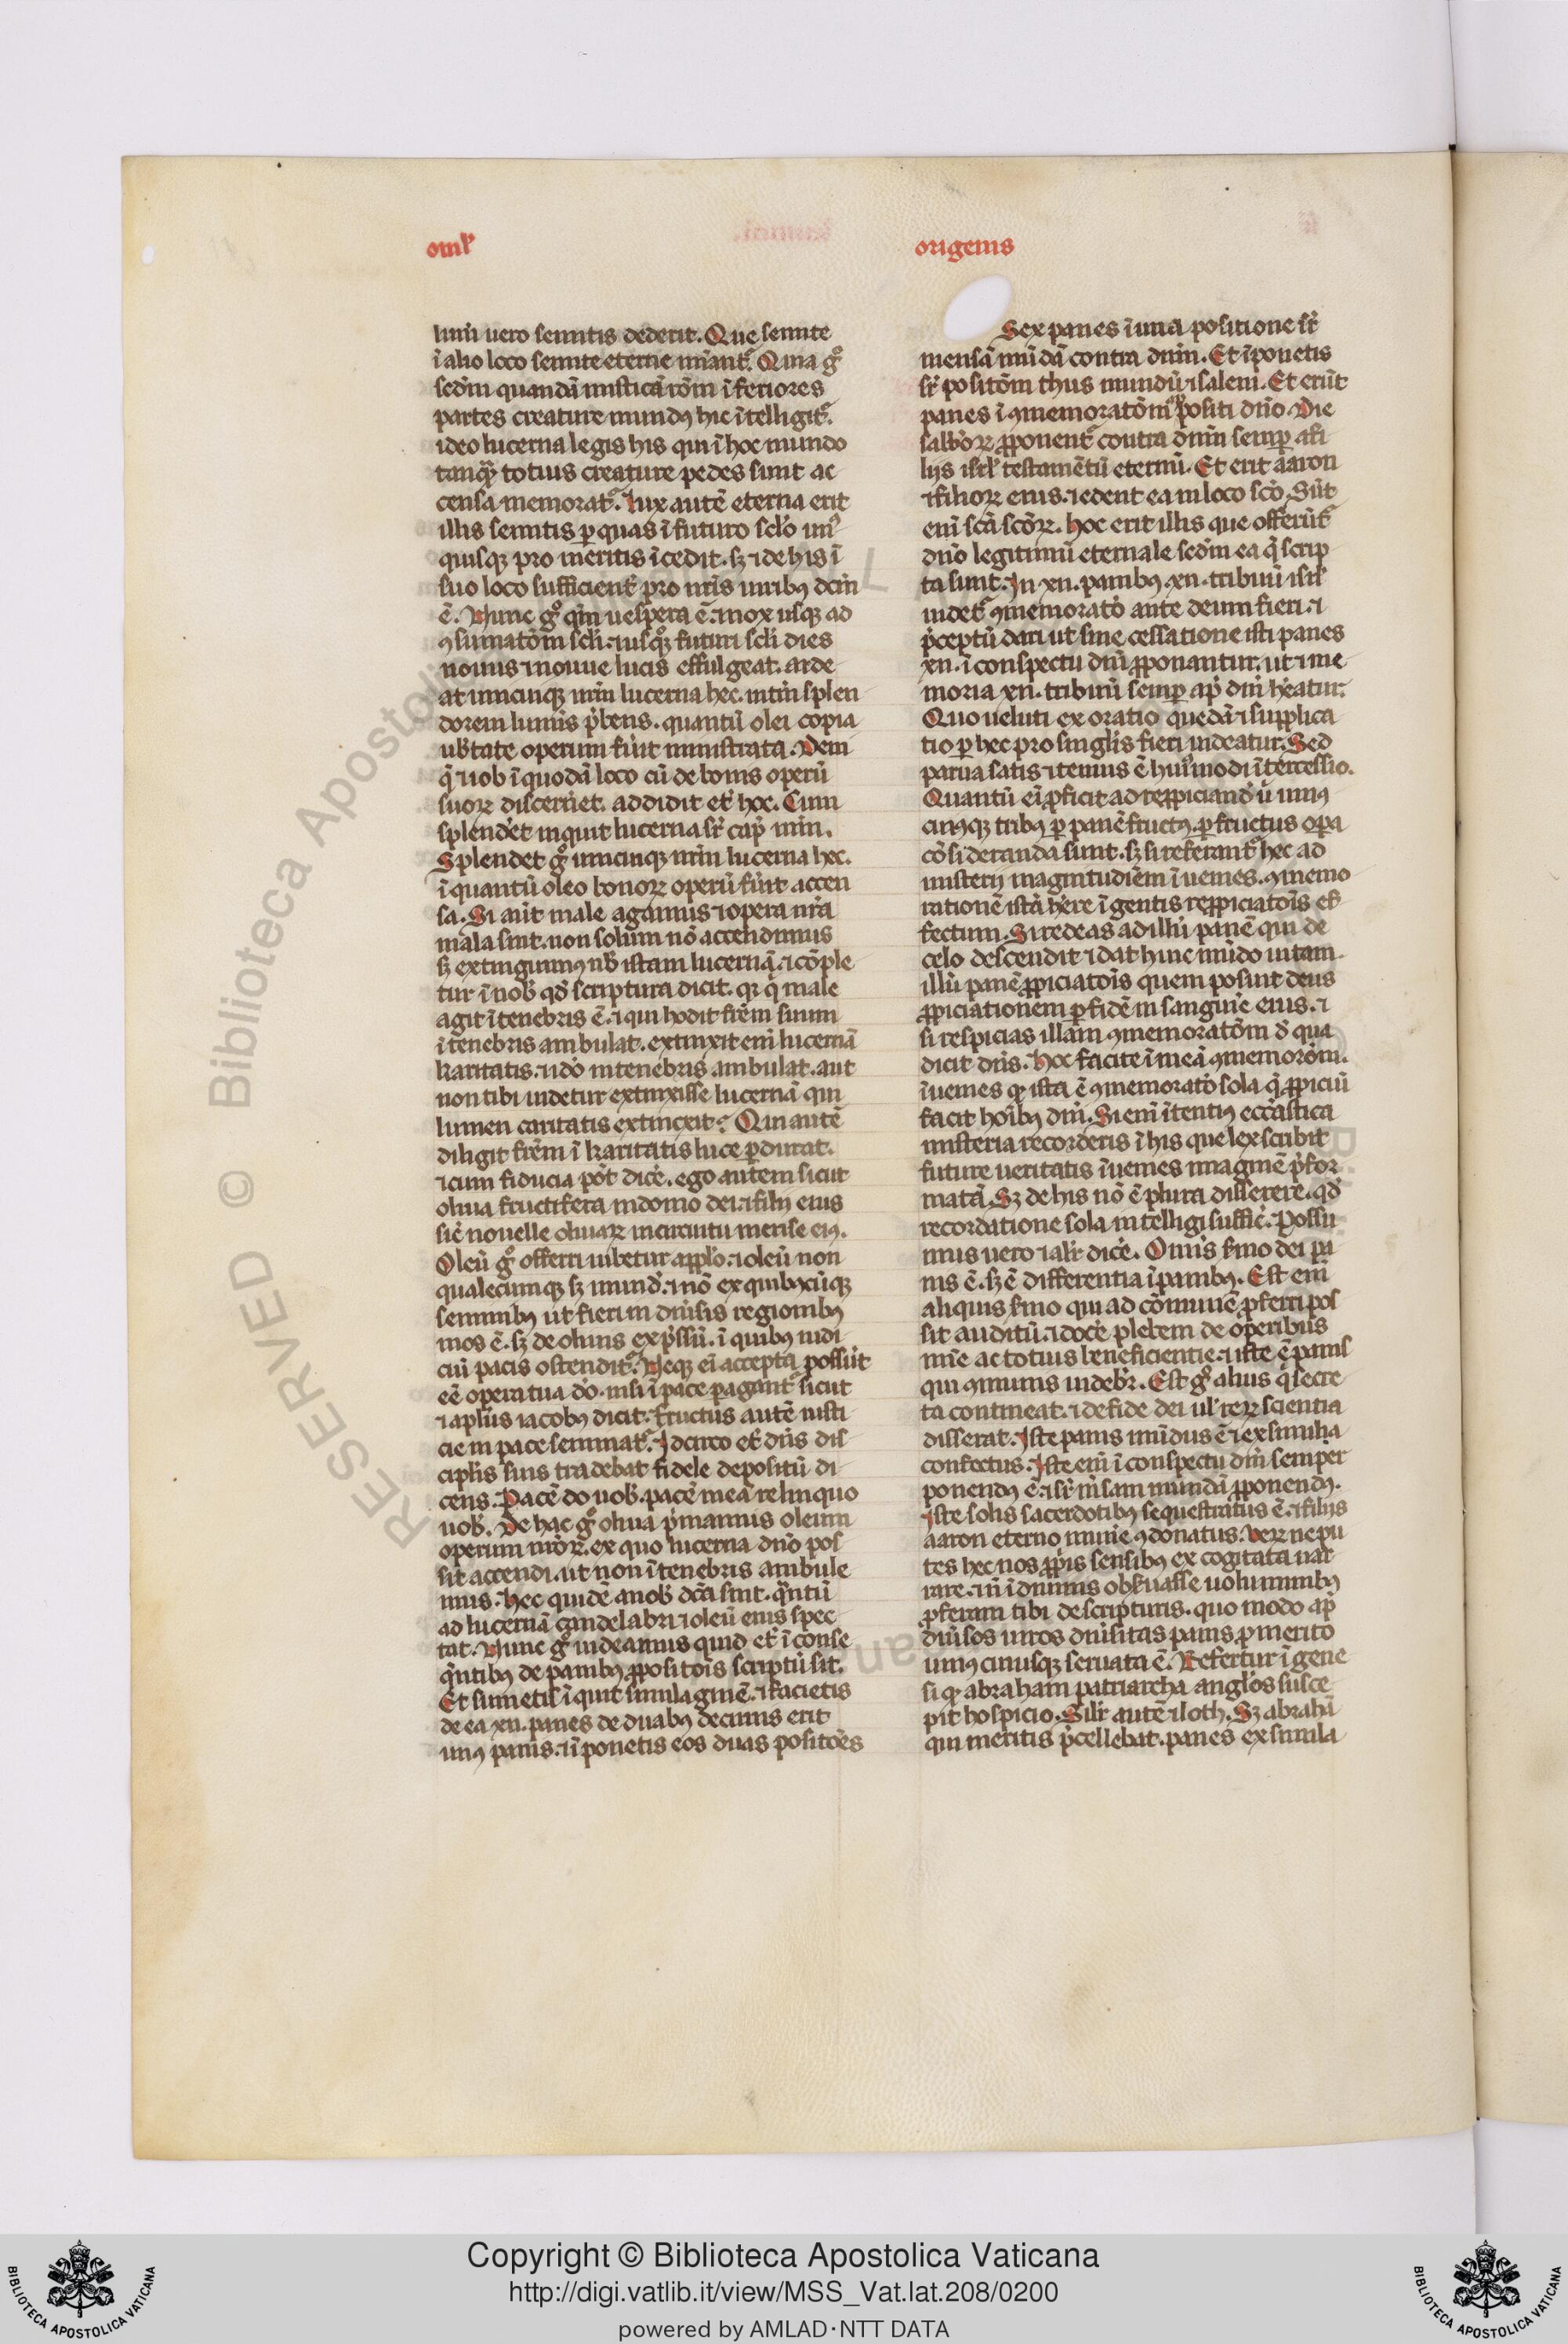 omł'
origenis
lum̄ vero semitis dederit. Que semite
ī alio loco semite eterne nn̄ant᷑. Quia g̊
sedm̄ quandā misticā rōm īferiores
partes creature mundꝰ hic ītelligit᷑.
ideo lucerna legis his qui ī hoc mundo
tanq̄ȝ totius creature pedes sunt ac
censa memorat᷑. lux autē eterna erit
illis semitis ꝑ quas ī futuro scło un᷒
quisqȝ pro meritis īcedit. sȝ ⁊ de his ī
suo loco sufficient᷑ pro nr̄is uiribꝰ dcm̄
ē. Nunc g̊ qm̄ uespera ē. ⁊ nox usqȝ ad
ꝯsumatōm scłi. ⁊ usqȝ futuri scłi dies
nouus ⁊ nouue lucis effulgeat. arde
at unicuiqȝ nrm̄ lucerna hec. intm̄ splen
dorem lumīs p̄bens. quantū olei copia
ub̄tate operum fūit ministrata. Deni
q̄ ⁊ iob ī quodā loco cū de bonis operū
suoꝝ disceret. addidit et᷑ hoc. Cum
splendet᷑ inquit lucerna sr̄ cap̄ mm̄.
Splendet g̊ unicuiqȝ nrm̄ lucerna hec.
ī quantū oleo bonoꝝ operū fūit accen
sa. Si aūt male agamus ⁊ opera nr̄a
mala sint. non solum nō accendimus
sȝ extinguimꝰ nob̄ istam lucernā. ⁊ cōple
tur ī nob̄ qđ scriptura dicit. qꝛ q̄ male
agit ī tenebris ē. ⁊ qui hodit frēm suum
ī tenebris ambulat. extinxit em̄ lucernā
karitatis. ⁊ iđo in tenebris ambulat. aut
non tibi uidetur extinxisse lucernā qui
lumen caritatis extinxit? Qui autē
diligit frēm ī karitatis luce ꝑdurat.
⁊ cum fiducia pōt dicē. ego autem sicut
oliua fructifera in domo dei. ⁊ filii eius
sic̄ nouelle oliuaꝝ in circuitu mense eiꝰ.
Oleū g̊ offerri iubetur applo. ⁊ oleū non
qualecumqȝ sȝ mund̄. ⁊ nō ex quibꝰcūqȝ
seminibꝰ ut fieri in diuīsis regionibꝰ
mos ē. sȝ de oliuis exp̄ssū. ī quibꝰ iudi
ciū pacis ostendit᷑. Neqȝ ei accepta possūt
eē opera tua đo. nisi ī pace ꝑagant᷑ sicut
⁊ apłus iacobꝰ dicit. fructus autē iusti
cie in pace seminat᷑. Idcirco et᷑ dn̄s dis
cipłis suis tradebat fidele depositū di
cens. Pacē do uob̄. pacē meā relinquo
uob̄. De hac g̊ oliua p̄mamus oleum
operum nr̄oꝝ. ex quo lucerna dn̄o pos
sit accendi. ut non ī tenebris ambule
mus. Hec quidē a nob̄ dc̄a sint. q̄ntū
ad lucernā candelabri ⁊ oleū eius spec
tat. Nunc g̊ uideamus quid et᷑ ī conse
q̄ntibꝰ de panibꝰ ꝓpositōis scriptū sit.
Et sumetis īquit similaginē. ⁊ facietis
de ea xii. panes de duabꝰ decimis erit
unꝰ panis. ⁊ īponetis eos duas positōēs
Sex panes ī una positione sr̄
mensā mūdā contra dnm̄. Et īponetis
sr̄ positōm thus mundū ⁊ salem. Et erūt
panes ī ꝯmemoratōm ꝓpositi dn̄o. Die
sabb̄oꝝ ꝓponent᷑ contra dnm̄ semꝑ a fi
liis isrł testamētū eternū. Et erit aaron
⁊ filioꝝ eius. ⁊ edent ea in loco scō. Sūt
em̄ scā scōꝝ. hoc erit illis que offerūt᷑
dn̄o legitimū eternale sedm̄ ea q̄ scrip
ta sunt. In xii. panibꝰ. xii. tribuū isrł
uidet᷑ ꝯmemoratō ante deum fieri. ⁊
p̄ceptū dari ut sine cessatione isti panes
xii. ī conspectu dn̄i ꝓponantur. ut ⁊ me
moria xii. tribuū semꝑ ap̄ dm̄ heatur.
Quo ueluti exoratio quedā ⁊ supplica
tio ꝑ hec pro singłis fieri uideatur. Sed
parua satis ⁊ tenuis ē huiꝰmodi ītercessio.
Quantū ei ꝓficit ad repropiciand̄ ū uniꝰ
cuiusqȝ tribꝰ ꝑ panē fructꝰ. ꝑ fructus opa
cōsideranda sunt. sȝ si referant᷑ hec ad
misterii magnitudiēm īuenies. ꝯmemo
rationē istā hēre īgentis repropiciatōīs ef
fectum. Si redeas ad illū panē qui de
celo descendit ⁊ dat huic mūdo uitam.
illū panē ꝓpiciatōīs quem posuit deus
ꝓpiciationem ꝑ fidē in sanguīe eius. ⁊
si respicias illam ꝯmemoratōm đ qua
dicit dn̄s. hoc facite ī meā ꝯmemorōm.
īuenies qꝫ ista ē ꝯmemoratō sola q̄ ꝓpiciū
facit hoībꝰ dm̄. Si em̄ ītentiꝰ ecc̄astica
misteria recorderis ī his que lex scribit
future ueritatis īuenies imaginē p̄for
matā. Sȝ de his nō ē plura disserere. qđ
recordatione sola intelligi sufficē. Possu
mus uero ⁊ alr̄ dicē. Omīs sermo dei pa
nis ē. sȝ ē differentia ī panibꝰ. Est em̄
aliquis sermo qui ad cōmunē ꝓferri pos
sit auditū. ⁊ docē plebem de operibus
mīe ac totius beneficientie. ⁊ iste ē panis
qui ꝯmunis uideb̄r. Est g̊ alius q̄ secre
ta contineat. ⁊ de fide dei uł reꝝ scientia
disserat. Iste panis mūdus ē ⁊ ex simila
confectus. Iste em̄ ī conspectu dn̄i semper
ponendꝰ ē. ⁊ sr̄ mēsam mundā ꝓponendꝰ.
Iste solis sacerdotibꝰ sequestratus ē. ⁊ filiis
aaron eterno munīe ꝯdonatus. Veꝝ ne pu
tes hec nos ꝓpriis sensibꝰ excogitata nar
rare. ⁊ nō ī diuinis obseruasse uoluminibꝰ
ꝓferam tibi de scripturis. quo modo ap̄
diuīsos uiros diuīsitas panis. ꝓ merito
uniꝰcuiusqȝ seruata ē. Refertur ī gene
si qꝫ abraham patriarcha angłos susce
pit hospicio. Silr̄ autē ⁊ loth. Sȝ abrahā
qui meritis p̄cellebat. panes ex simila
RESERVED © Biblioteca Apostolica
Copyright © Biblioteca Apostolica Vaticana
http://digi.vatlib.it/view/MSS_Vat.lat.208/0200
powered by AMLAD·NTT DATA
BIBLIOTECA APOSTOLICA VATICANA
BIBLIOTECA APOSTOLICA VATICANA